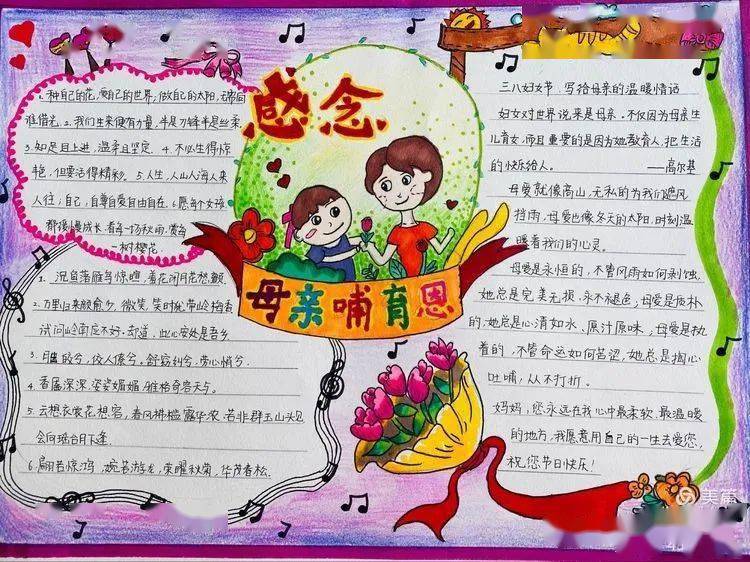 感念
母亲哺育恩
1.种自己的花,爱自己的世界,做自己的太阳,无需向
谁借光.2.我们生来便有力量,半是刀锋半是丝柔
3.知足且上进,温柔且坚定.4.不必生得惊
艳,但要活得精彩.5.人生,人山人海,人来
人往,自己,自尊自爱自由自在.6.愿每个女孩
都
成长
一树樱花
1.沉鱼落雁鸟惊喧,羞花闭月花愁颤
2.万里归来颜愈少,微笑,笑时犹带岭梅香
试问岭南应不好,却道,此心安处是吾乡
3.月出皎兮,佼人僚兮,舒窈纠兮,劳心悄兮.
4.香
深深,姿姿媚媚,雅格奇容天与.
5.云想衣裳花想容,春风拂槛露华浓.若非群玉山头见
会向瑶台月下逢.
6.翩若惊鸿,婉若游龙,荣曜秋菊,华茂春松.
三八妇女节,写给母亲的温暖情话
妇女对世界说来是母亲.不仅因为母亲生
儿育女,而且重要的是因为她教育人,把生活
的快乐给人.
——高尔基
母爱就像高山,无私的为我们遮风
挡雨,母爱也像冬天的太阳,时刻温
暖着我们的心灵.
母爱是永恒的,不管风雨如何剥蚀,
她总是完美无损,永不褪色;母爱是质朴
的,她总是心清如水、原汁原味;母爱是执
着的,不管命运如何苦涩,她总是掏心
吐哺,从不打折.
妈妈,您永远在我心中最柔软,最温暖
的地方,我愿意用自己的一生去爱您,
祝您节日快乐!
美篇